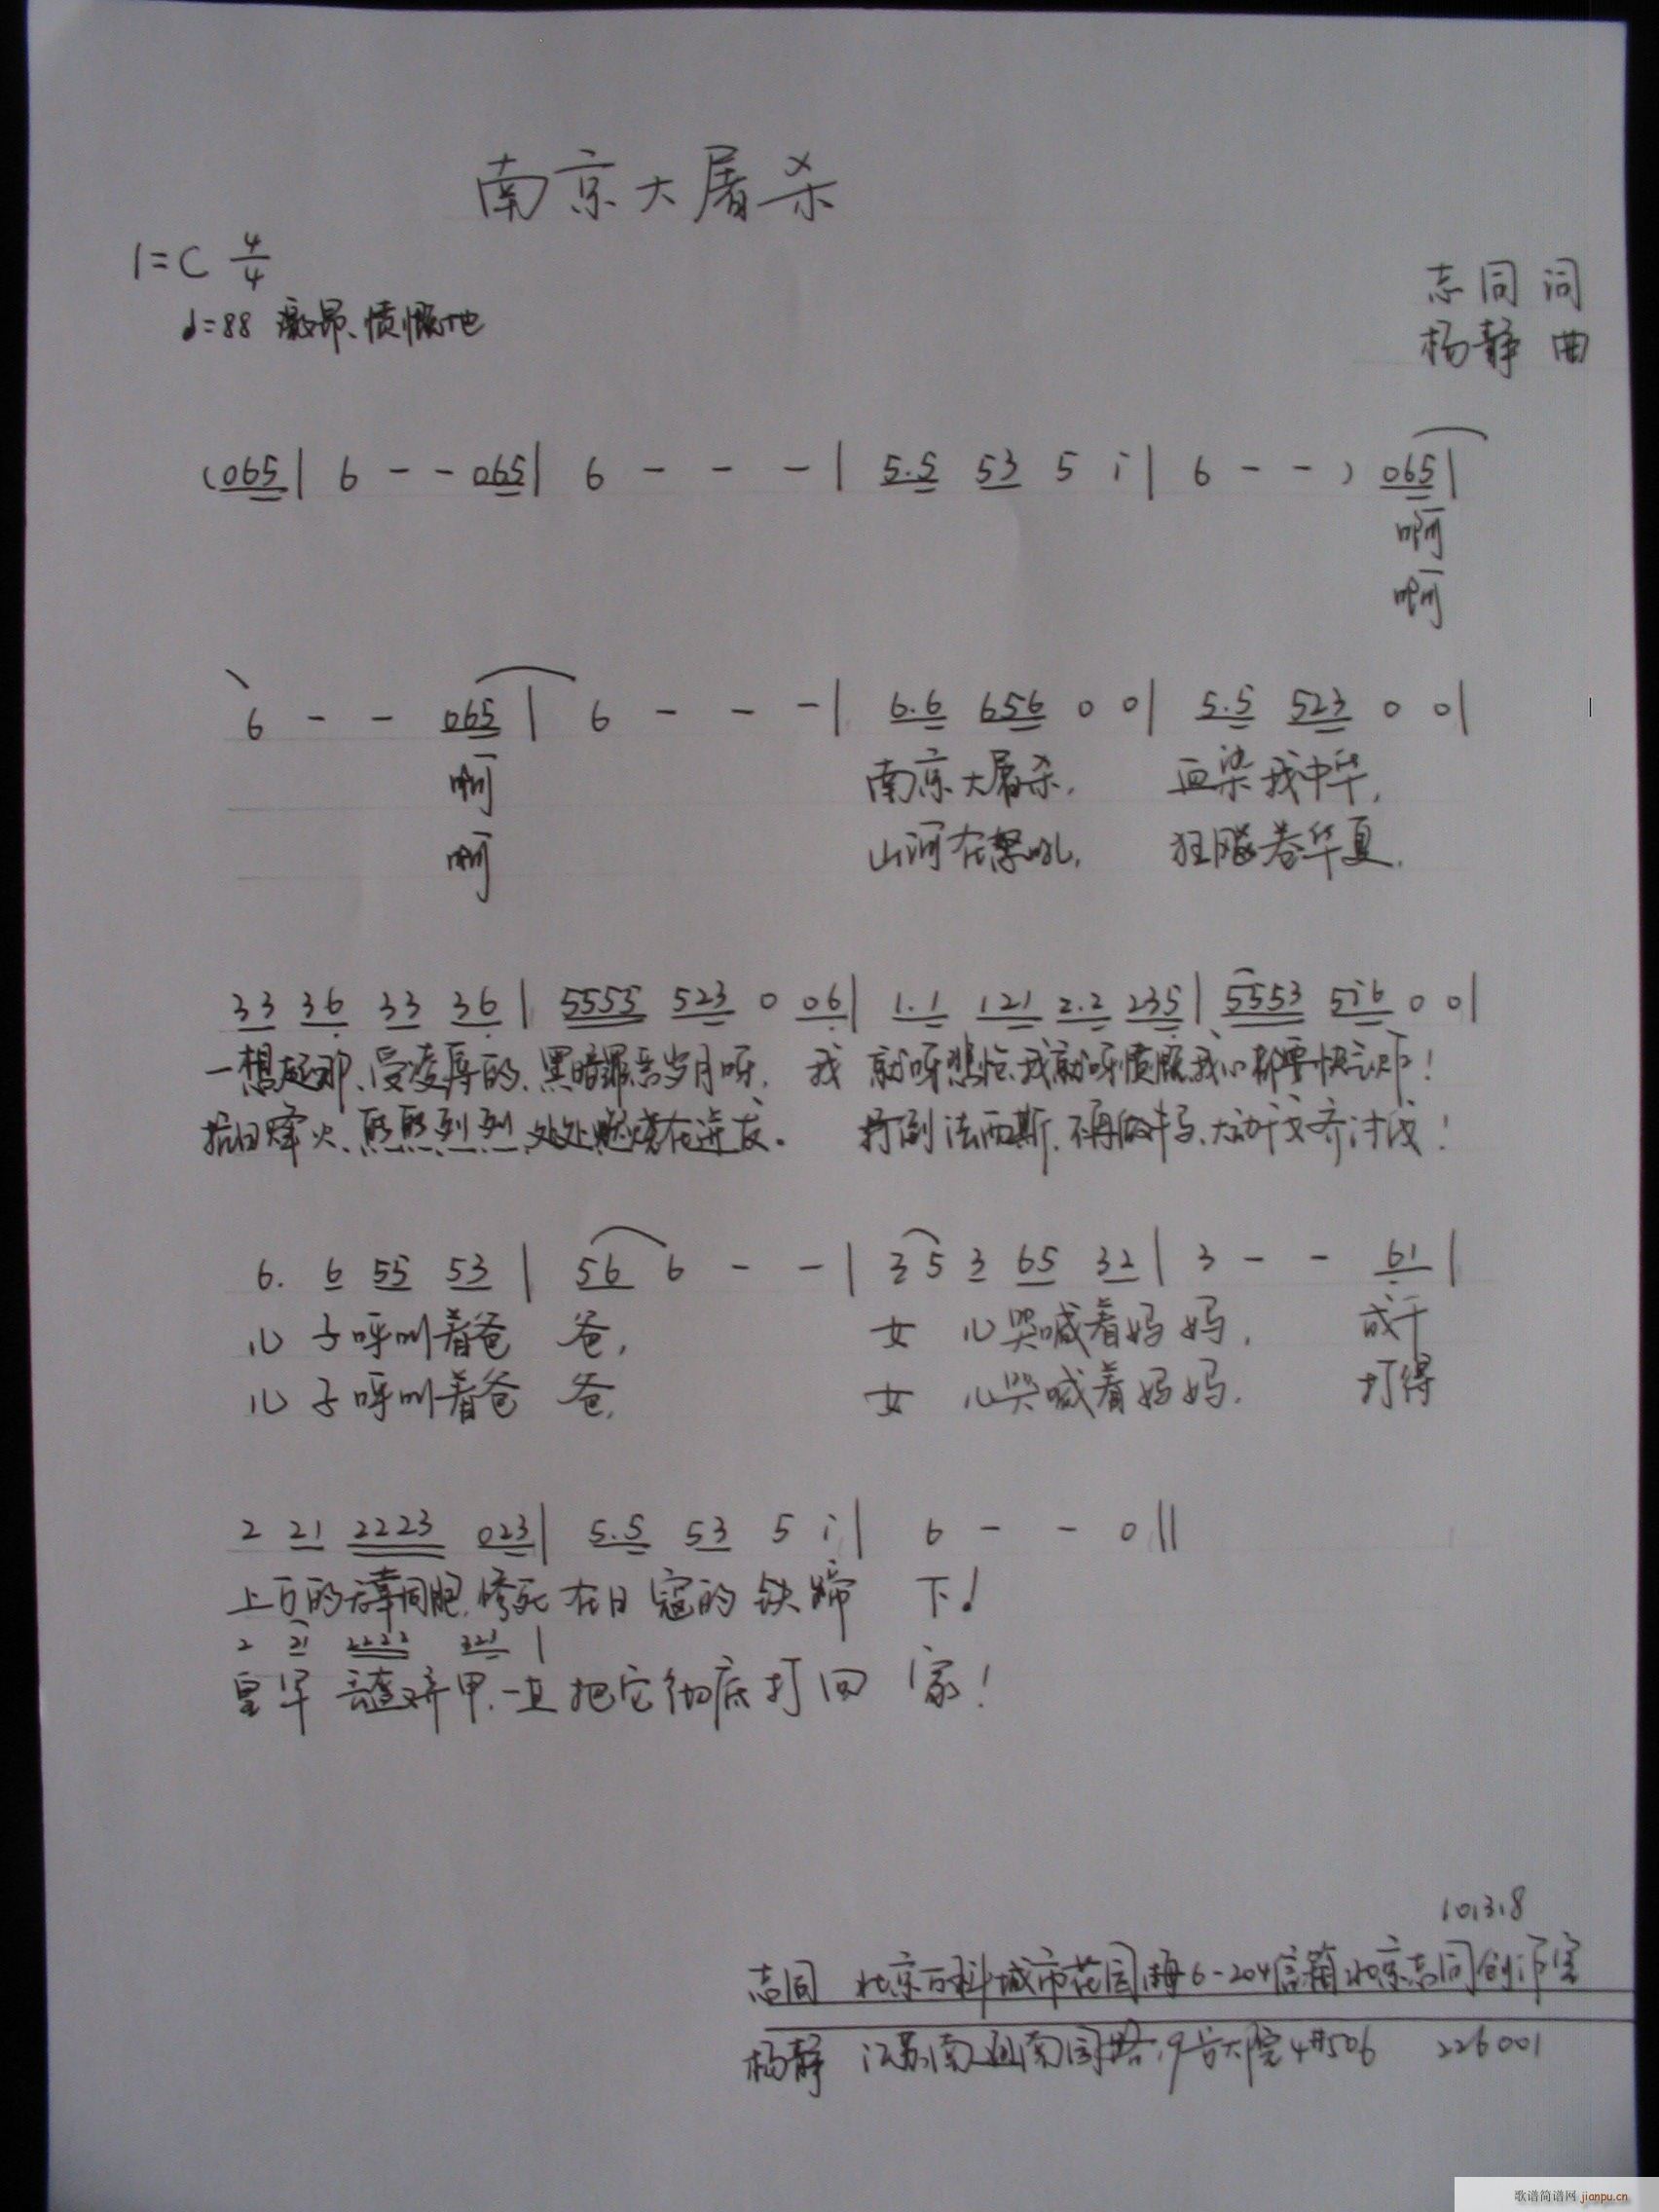 南京大屠杀
1=C 4/4
♩=88 激昂、愤慨地
志同 词
杨静 曲
(065| 6 - - 065| 6 - - -| 5.5 53 5 i| 6 - - ) 065|
啊
啊
6 - - 065| 6 - - -| 6.6 656 0 0| 5.5 523 0 0|
啊 南京大屠杀, 血染我中华,
啊 山河在怒吼, 狂飚卷华夏.
33 36 33 36| 5555 523 0 06| 1.1 121 2.2 235| 5553 5i6 0 0|
一想起那、受凌辱的、黑暗罪恶岁月呀, 我 就呀悲怆、我就呀愤慨、我心都要快气炸!
抗日烽火、熙熙烈烈、处处燃烧在迸发。 打倒法西斯、不再做牛马、大动干戈齐讨伐!
6. 6 55 53| 56 6 - -| 3 5 3 65 32| 3 - - 61|
儿 子呼叫着爸 爸, 女 儿哭喊着妈妈, 成千
儿 子呼叫着爸 爸, 女 儿哭喊着妈妈. 打得
2 21 2223 023| 5.5 53 5 i| 6 - - 0||
上万的无辜同胞,惨死在日寇的铁蹄 下!
2 21 2222 321|
皇军 丢盔弃甲,一直把它彻底打回 家!
10.3.8
志同 北京万科城市花园 6-204信箱北京志同创作室
杨静 江苏南通南园路,9号大院4#506 226001
歌谱简谱网 jianpu.cn